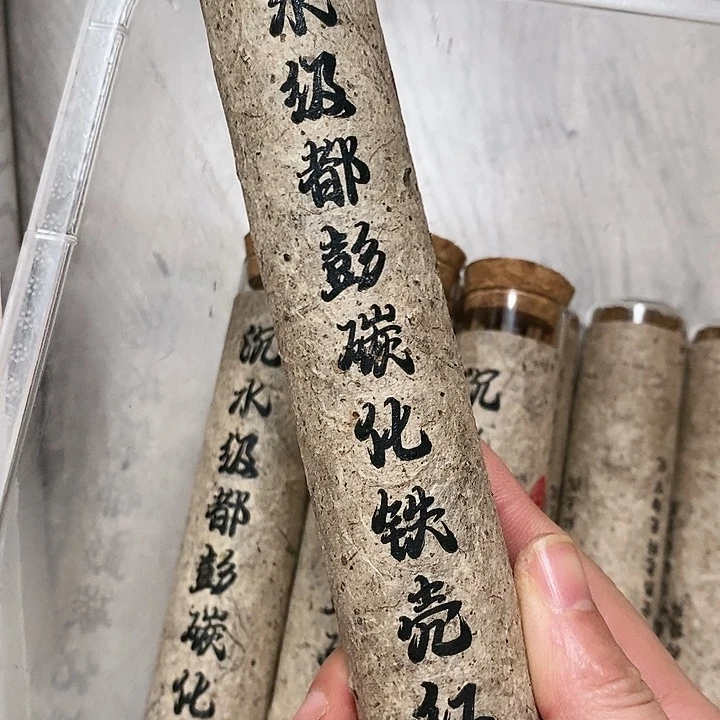 水级都彭碳化铁壳
沉水级都彭碳化
沉